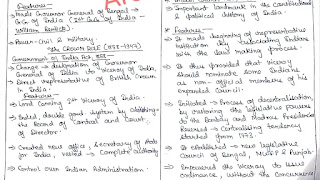 Features :-
Made Governor General of Bengal →
G.G of India (1st G.G. of India
William Bentick)
Power - Civil & Military.
The Crown Rule (1858-1947)
Government of India Act, 1858
Change the designation of Governor
General of India to Viceroy of India.
Direct representative of British Crown
in India.
Features
Lord Canning 1st Viceroy of India.
Ended double govt system by abolishing
the Board of Control and Court
of Director.
Created new office, Secretary of State
for India, vested → Complete authority
Control over Indian Administration.
Important landmark in the Constitutional
& political history of India.
Features -
It made beginning of representative
institution by associating Indians
with the law making process.
It thus provided that viceroy
should nominate some Indians
as non-official members of his
expanded Council.
Initiated → Process of decentralisation
by restoring the legislative powers
to the Bombay and Madras Presidencies
Reversed → Centralising tendency
started from 1773.
Established → new legislative
Council of Bengal, NWFP & Punjab
Empowered the viceroy to issue
ordinance, without the concurrence